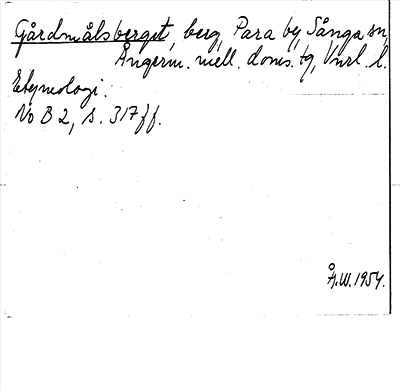 Gårdmålsberget, berg, Para by, Sånga sn,
Ångerm. mell. doms. tg, Vnrl. l.
Etymologi.
No B 2, s. 317 ff.
Å.W. 1954.